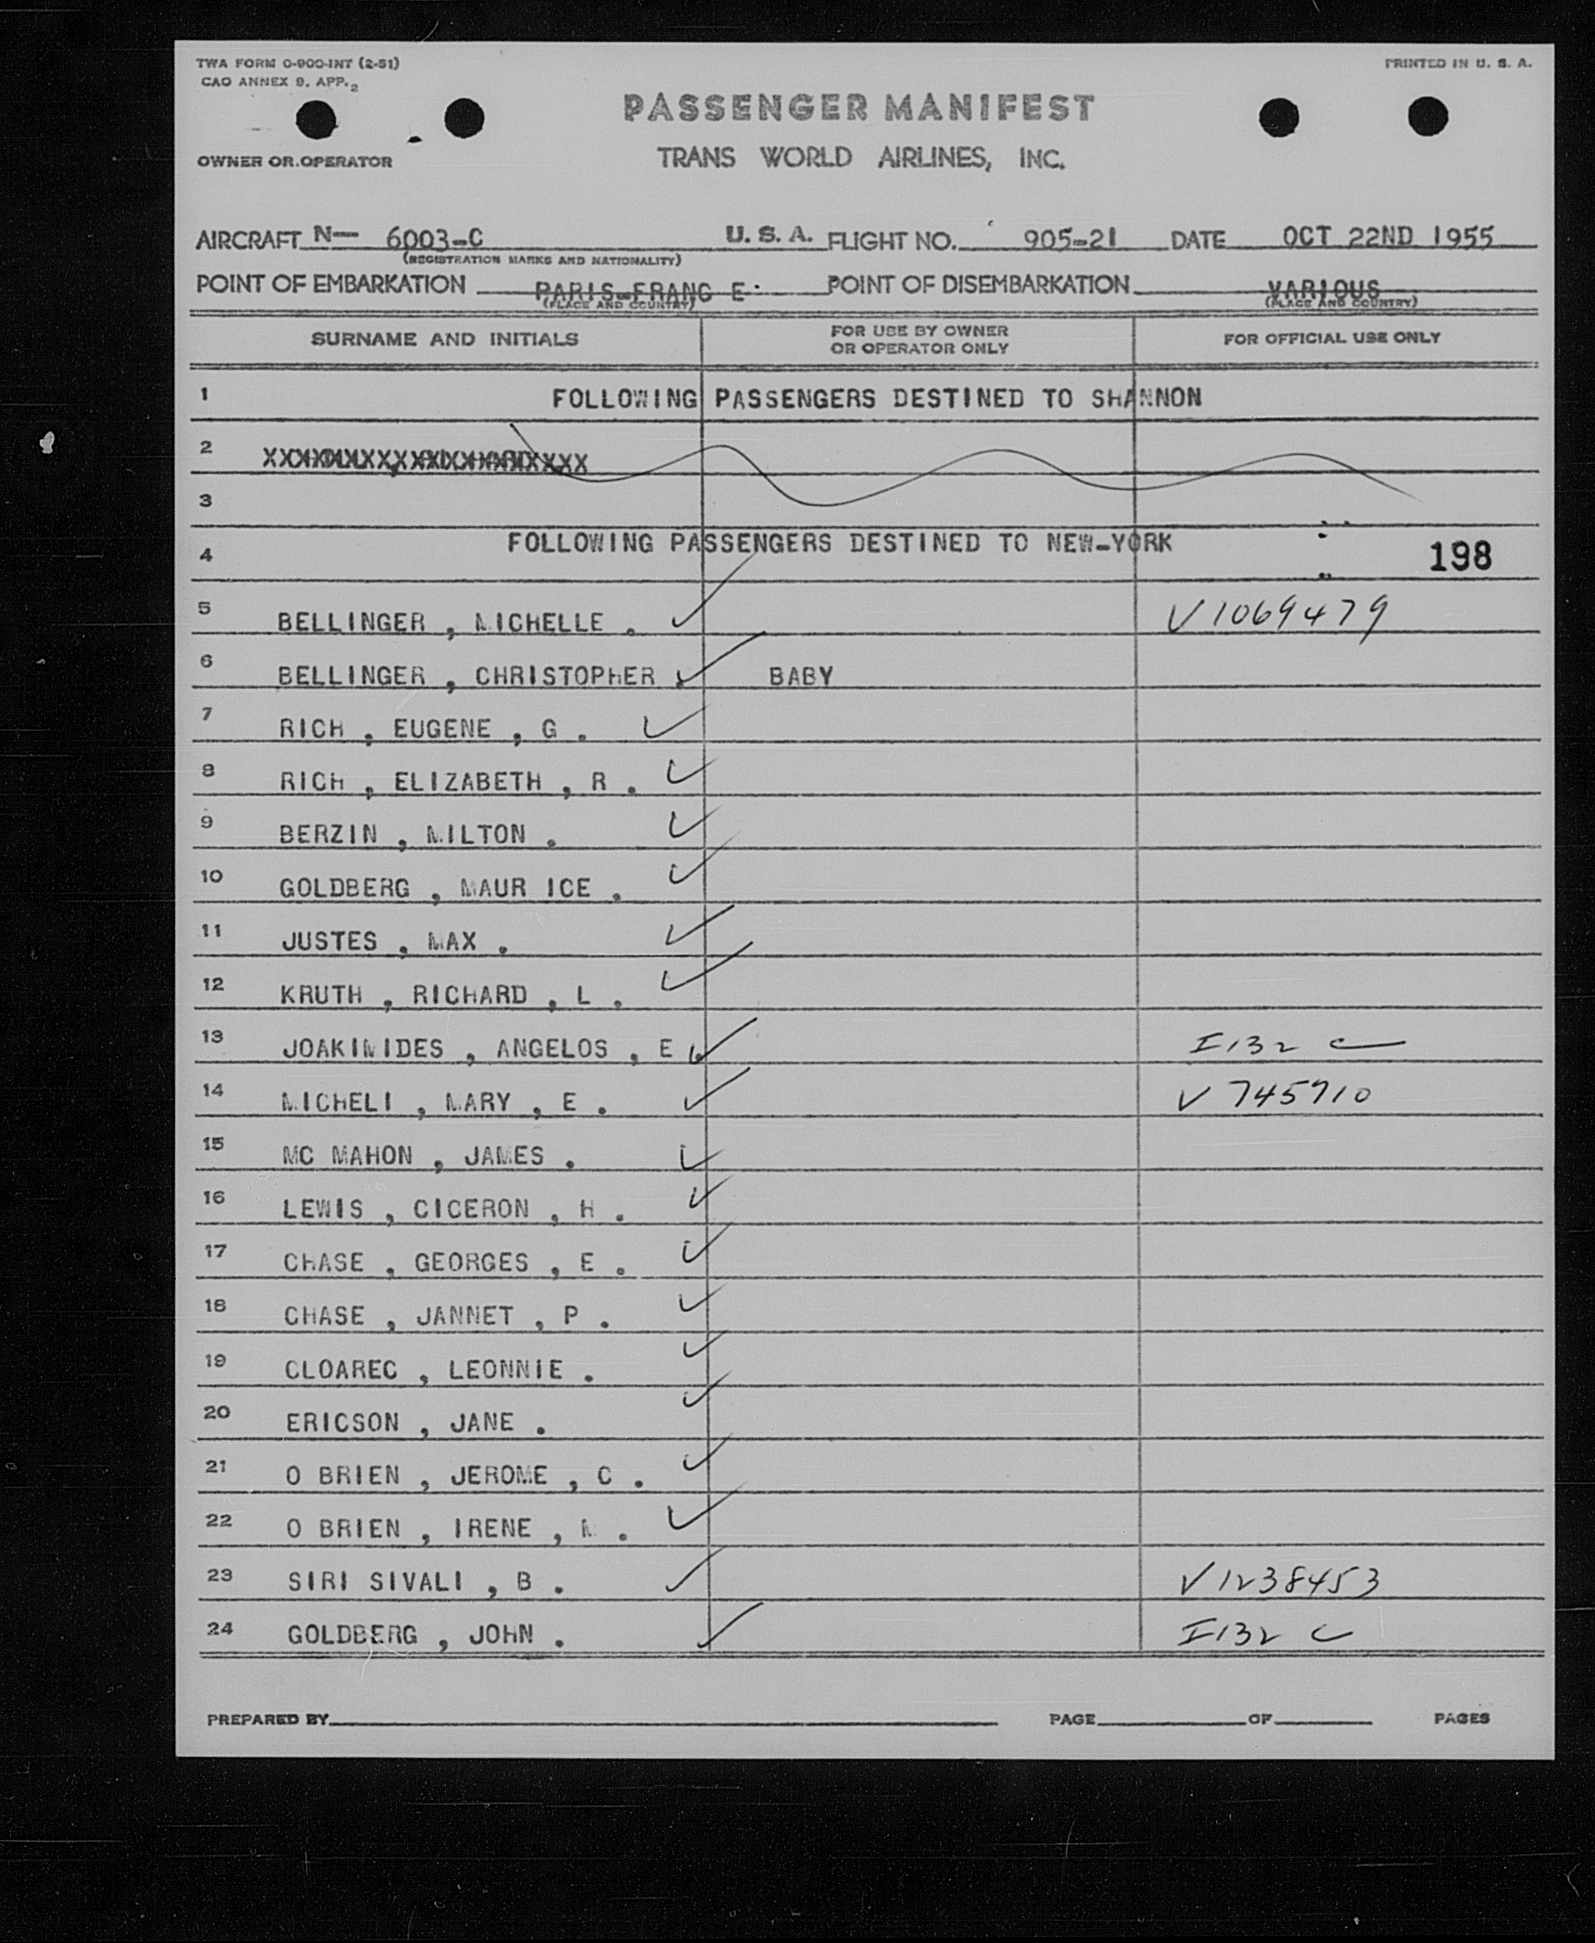 TWA FORM O-900-INT (2-51)
CAO ANNEX 9, APP. 2
PRINTED IN U. S. A.
PASSENGER MANIFEST
OWNER OR OPERATOR
TRANS WORLD AIRLINES, INC.
AIRCRAFT N— 6003-C U. S. A. FLIGHT NO. 905-21 DATE OCT 22ND 1955
(REGISTRATION MARKS AND NATIONALITY)
POINT OF EMBARKATION PARIS-FRANC E. POINT OF DISEMBARKATION VARIOUS
(PLACE AND COUNTRY) (PLACE AND COUNTRY)
SURNAME AND INITIALS FOR USE BY OWNER OR OPERATOR ONLY FOR OFFICIAL USE ONLY
1 FOLLOWING PASSENGERS DESTINED TO SHANNON
2
3
4 FOLLOWING PASSENGERS DESTINED TO NEW-YORK 198
5 BELLINGER , MICHELLE . V1069479
6 BELLINGER , CHRISTOPHER . BABY
7 RICH , EUGENE , G .
8 RICH , ELIZABETH , R .
9 BERZIN , MILTON .
10 GOLDBERG , MAUR ICE .
11 JUSTES , MAX .
12 KRUTH , RICHARD , L .
13 JOAKIMIDES , ANGELOS , E . I132 C
14 MICHELI , MARY , E . V 745710
15 MC MAHON , JAMES .
16 LEWIS , CICERON , H .
17 CHASE , GEORGES , E .
18 CHASE , JANNET , P .
19 CLOAREC , LEONNIE .
20 ERICSON , JANE .
21 O BRIEN , JEROME , C .
22 O BRIEN , IRENE , M .
23 SIRI SIVALI , B . V1238453
24 GOLDBERG , JOHN . I132 C
PREPARED BY PAGE OF PAGES